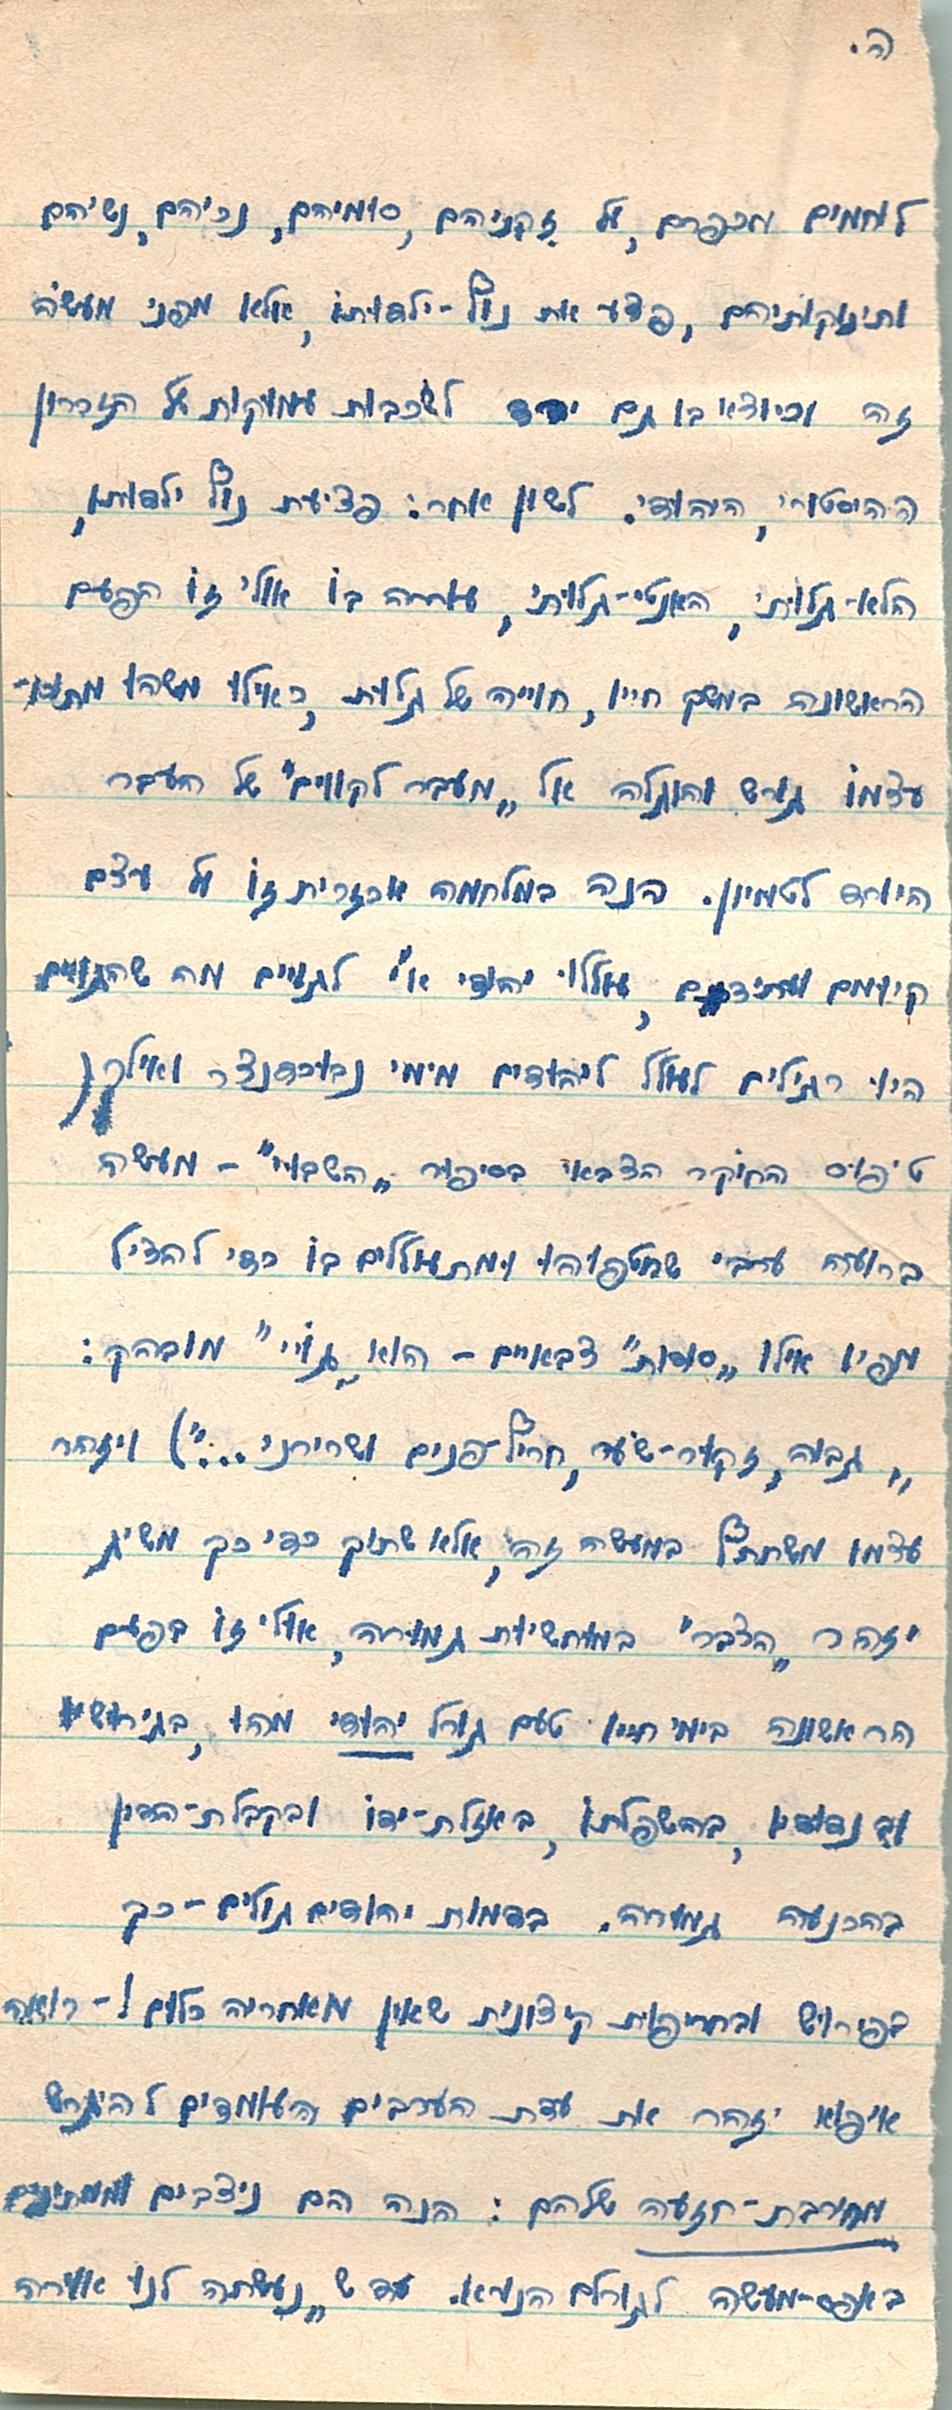 ה.
לוחמים מכפרם, על זקניהם, סומיהם, נכיהם, נשיהם
ותינוקותיהם, פצע את נוף-ילדותו, אלא מפני מעשה
זה וכיוצא בו גם ירד לשכבות עמוקות של הזכרון
ההיסטורי, היהודי. לשון אחר: פציעת נוף ילדותו,
הלא-גלותי, האנטי-גלותי, עוררה בו אולי זו הפעם
הראשונה במשך חייו, חוייה של גלות, כאילו משהו מתוכו-
עצמו גורש והוגלה אל „מעבר לקווים" של העבר
היורד לטמיון. הנה במלחמה אכזרית זו על עצם
קיומם ועתידם, עוללו יהודי א"י לגויים מה שהגויים
היו רגילים לעולל ליהודים מימי נבוכדנצר ואילך (
טיפוס החוקר הצבאי בסיפור „השבוי" - מעשה
ברועה ערבי שחטפוהו ומתעוללים בו כדי להציל
מפיו אילו „סודות" צבאיים - הוא „גויי" מובהק:
„גבוה, זקור-שער, חריף-פנים ושרירני...") ויזהר
עצמו משתתף במעשה זה, אלא שתוך כדי כך משיג
יזהר „הצבר" במוחשיות גמורה, אולי זו הפעם
הראשונה בימי חייו טעם גורל יהודי מהו, בגירושיו
ובנדודיו, בהשפלתו, באזלת-ידו ובקבלת-הדין
בהכנעה גמורה. בדמות יהודים גולים - כך
בפירוש ובחריפות קיצונית שאין מאחריה כלום ! - רואה
איפוא יזהר את עדת הערבים העומדים להיגרש
מחרבת-חזעה שלהם: הנה הם ניצבים וממתינים
באפס-מעשה לגורלם הנורא. עד ש„נעשתה לנו אוירה